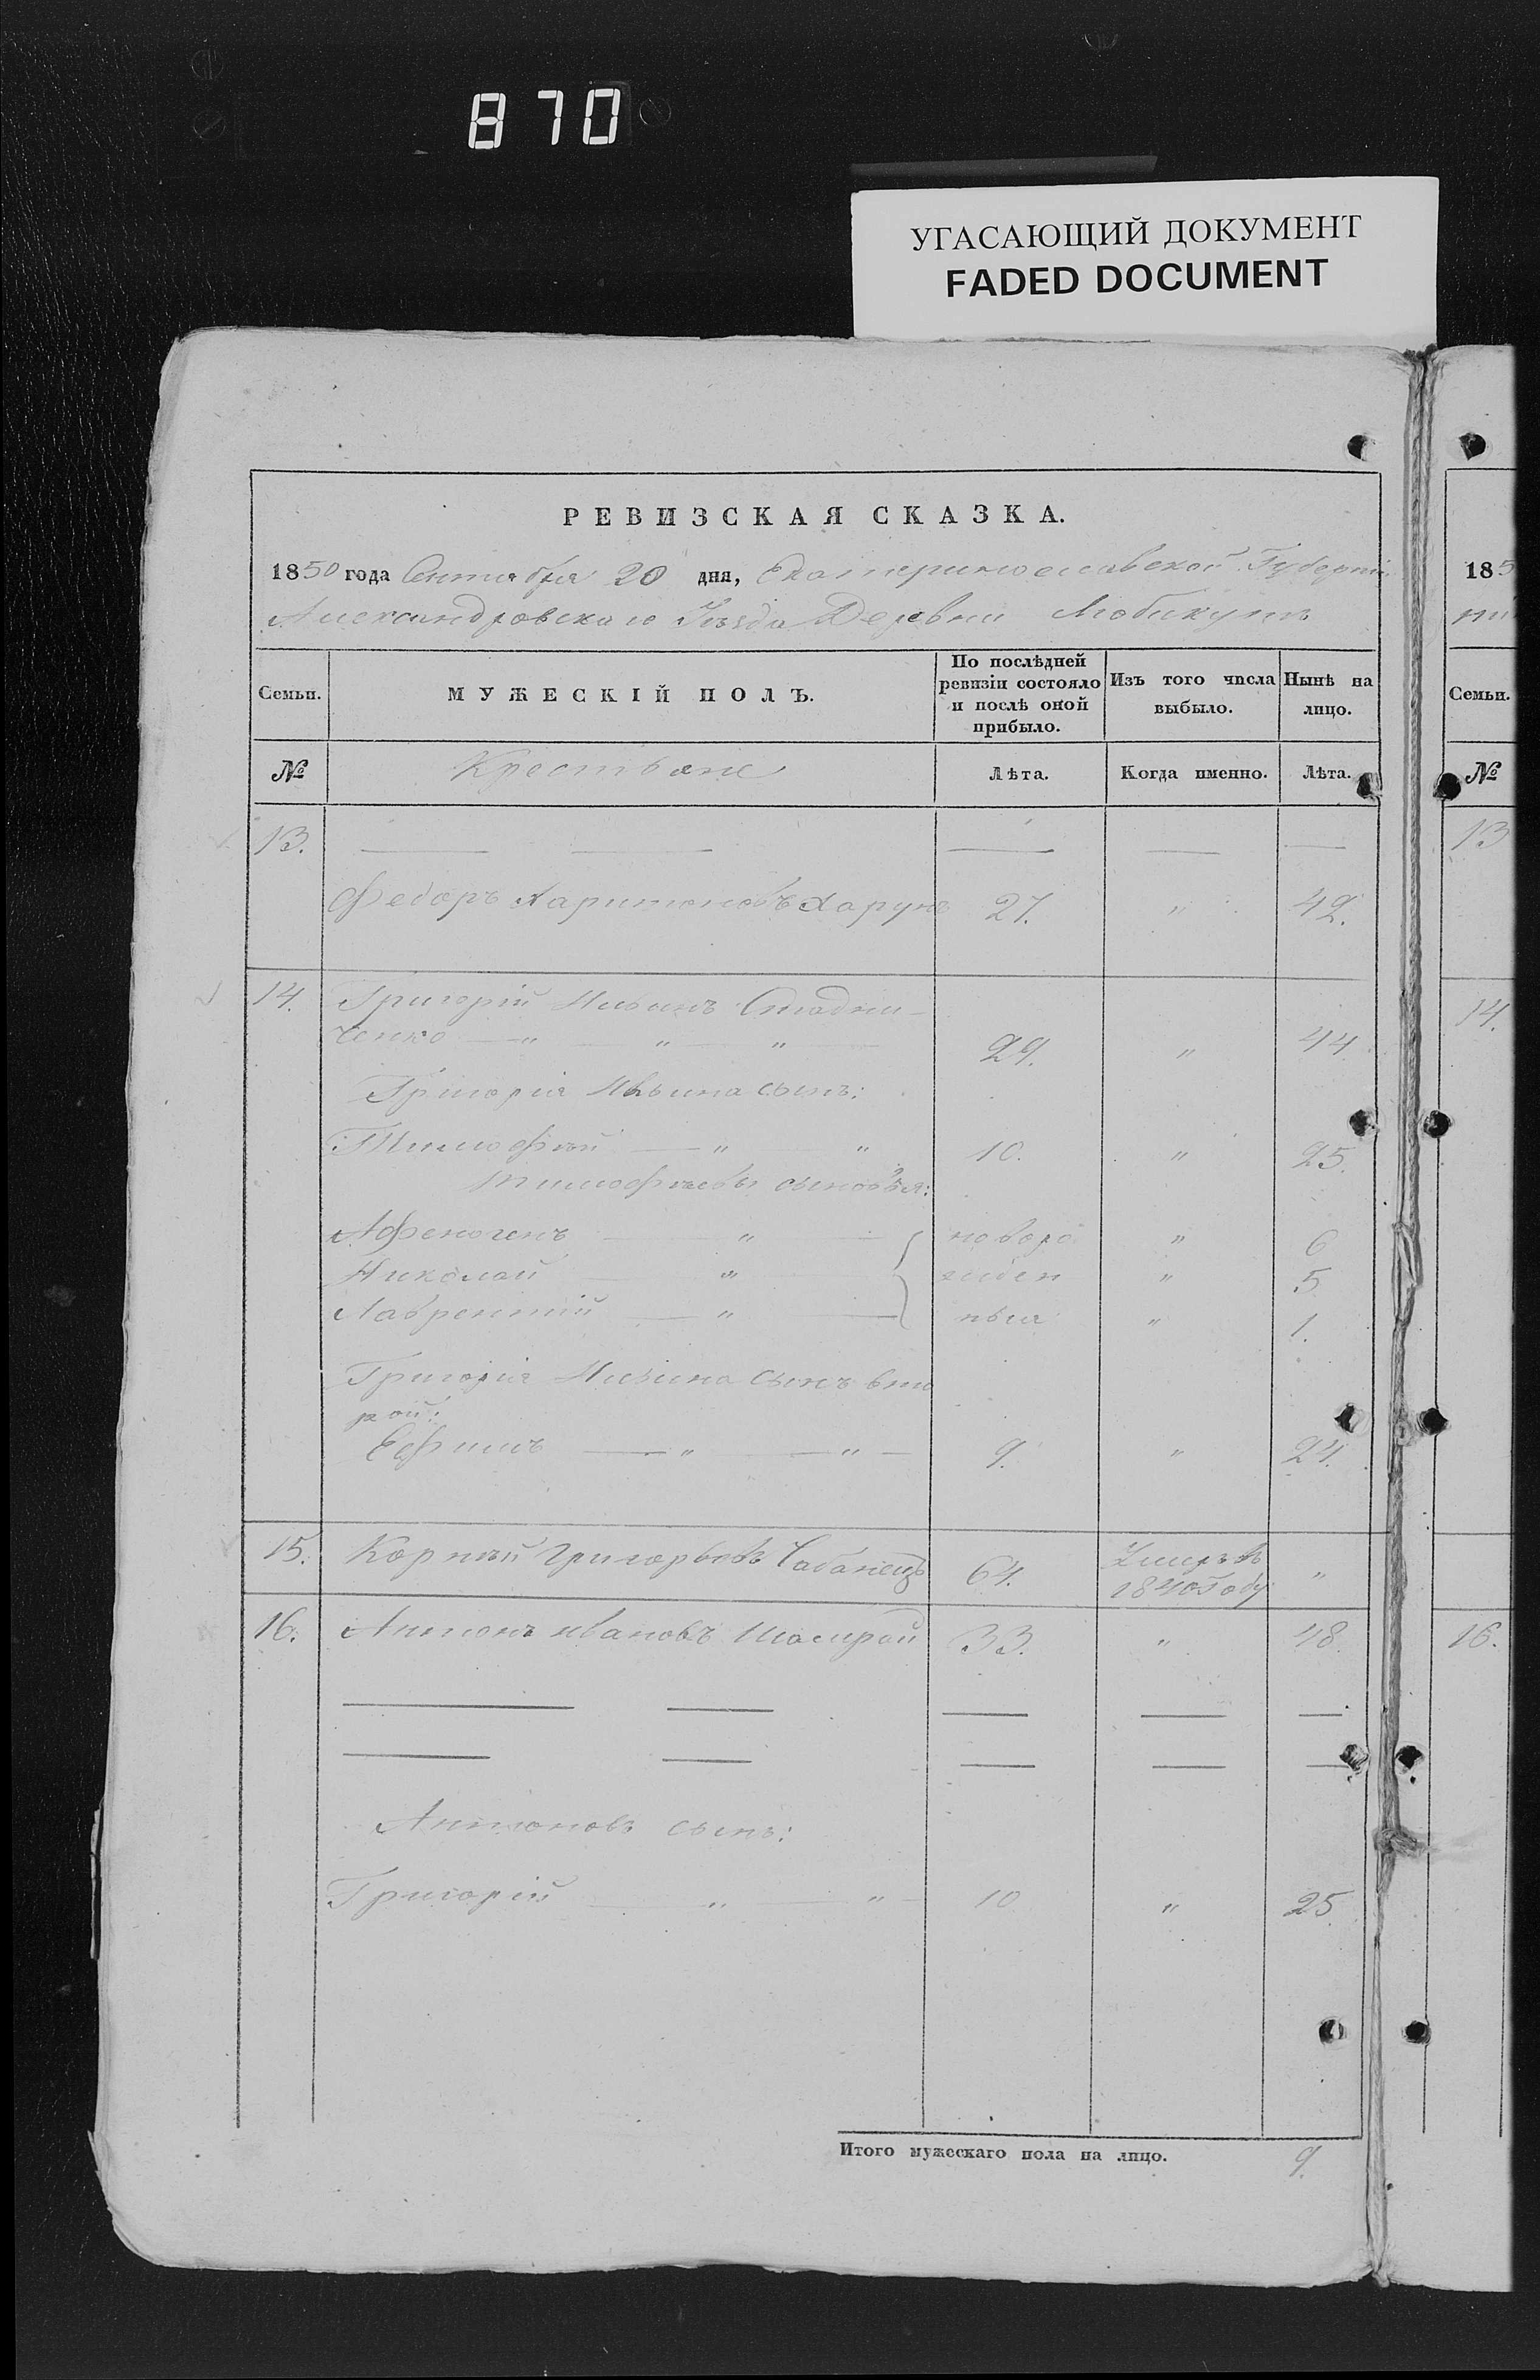 870
УГАСАЮЩИЙ ДОКУМЕНТ
FADED DOCUMENT
РЕВИЗСКАЯ СКАЗКА.
1850 года Сентября 20 дня, Екатеринославской Губерніи
Александровскаго Уѣзда Деревни Любикутъ
Семьи.
МУЖЕСКІЙ ПОЛЪ.
По послѣдней ревизіи состояло и послѣ оной прибыло.
Изъ того числа выбыло.
Нынѣ на лицо.
№ Крестьяне Лѣта. Когда именно. Лѣта.
13.
Федоръ Харитоновъ 27. " 42.
14. Григорій Ильинъ Стадни-
ченко " " " 29. " 44
Григорія Ильина сынъ:
Тимофѣй " " 10. " 25.
Тимофѣевы сыновья:
Афеногенъ " новоро " 6
Николай " жден " 5
Лаврентій " ныя " 1.
Григорія Ильина сынъ вто
рой:
Ефимъ " " 9. " 24.
15. Корнѣй Григорьевъ Чабанецъ 64. Умеръ въ 1840 году "
16. Антонъ Ивановъ 33. " 48
Антоновъ сынъ:
Григорій " " 10 " 25
Итого мужескаго пола на лицо. 9.
185
Семьи.
№
13
14.
16.